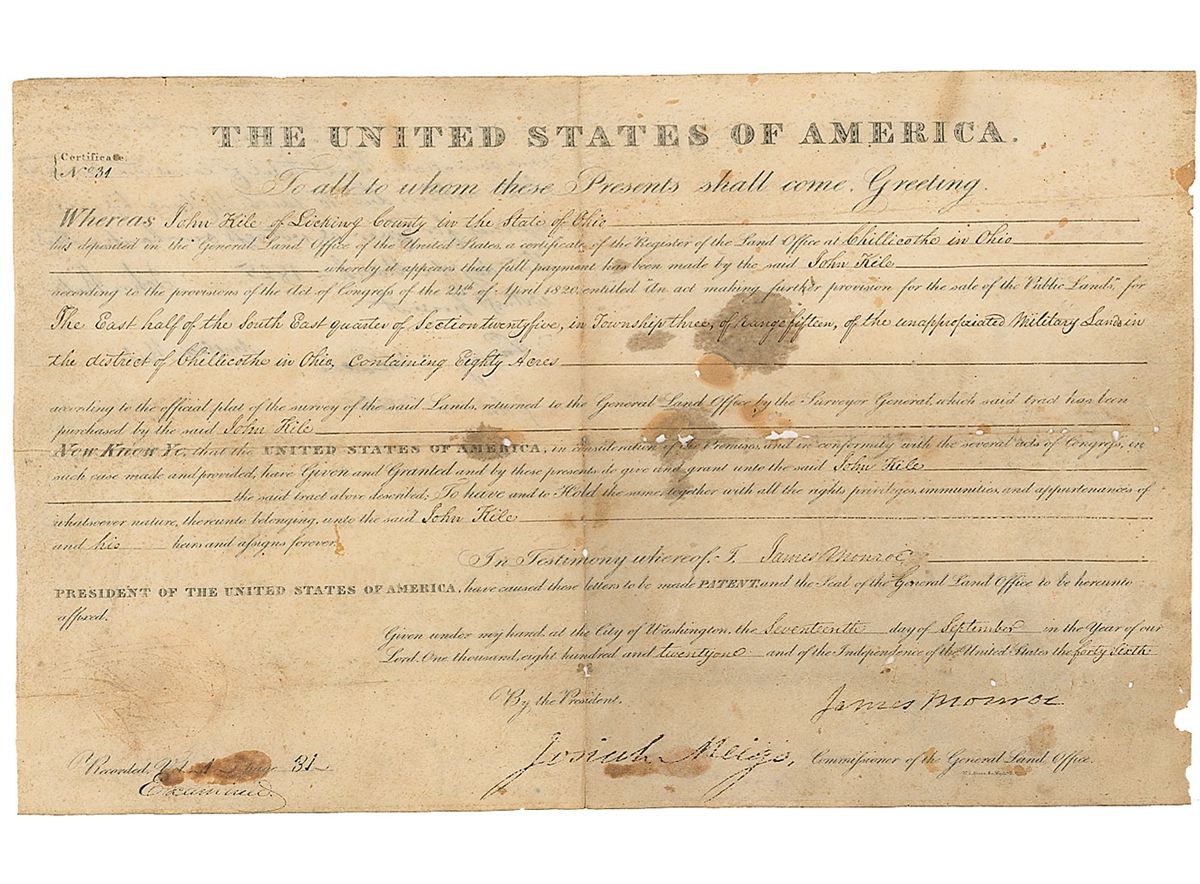 THE UNITED STATES OF AMERICA.
Certificate
No 31
To all to whom these Presents shall come, Greeting.
Whereas John Kile of Licking County in the State of Ohio
has deposited in the General Land Office of the United States, a certificate of the Register of the Land Office at Chillicothe in Ohio
whereby it appears that full payment has been made by the said John Kile
according to the provisions of the Act of Congress of the 24th of April 1820, entitled An act making further provision for the sale of the Public Lands, for
The East half of the South East quarter of Section twenty five, in Township three, of range fifteen, of the unappropiated Military Lands in
the district of Chillicothe in Ohio, containing Eighty Acres
according to the official plat of the survey of the said Lands, returned to the General Land Office by the Surveyor General, which said tract has been
purchased by the said John Kile
Now Know Ye, that the UNITED STATES OF AMERICA, in consideration of the Premises, and in conformity with the several acts of Congress, in
such case made and provided, have Given and Granted and by these presents do give and grant unto the said John Kile
the said tract above described; To have and to Hold the same, together with all the rights privileges, immunities, and appurtenances of
whatsoever nature, thereunto belonging, unto the said John Kile
and his heirs and assigns forever.
In Testimony whereof, I, James Monroe
PRESIDENT OF THE UNITED STATES OF AMERICA, have caused these letters to be made PATENT, and the Seal of the General Land Office to be hereunto
affixed.
Given under my hand, at the City of Washington, the Seventeenth day of September in the Year of our
Lord, One thousand, eight hundred and twenty one and of the Independence of the United States the forty sixth
By the President,
James Monroe
Josiah Meigs, Commissioner of the General Land Office.
Recorded, 31
Examined.